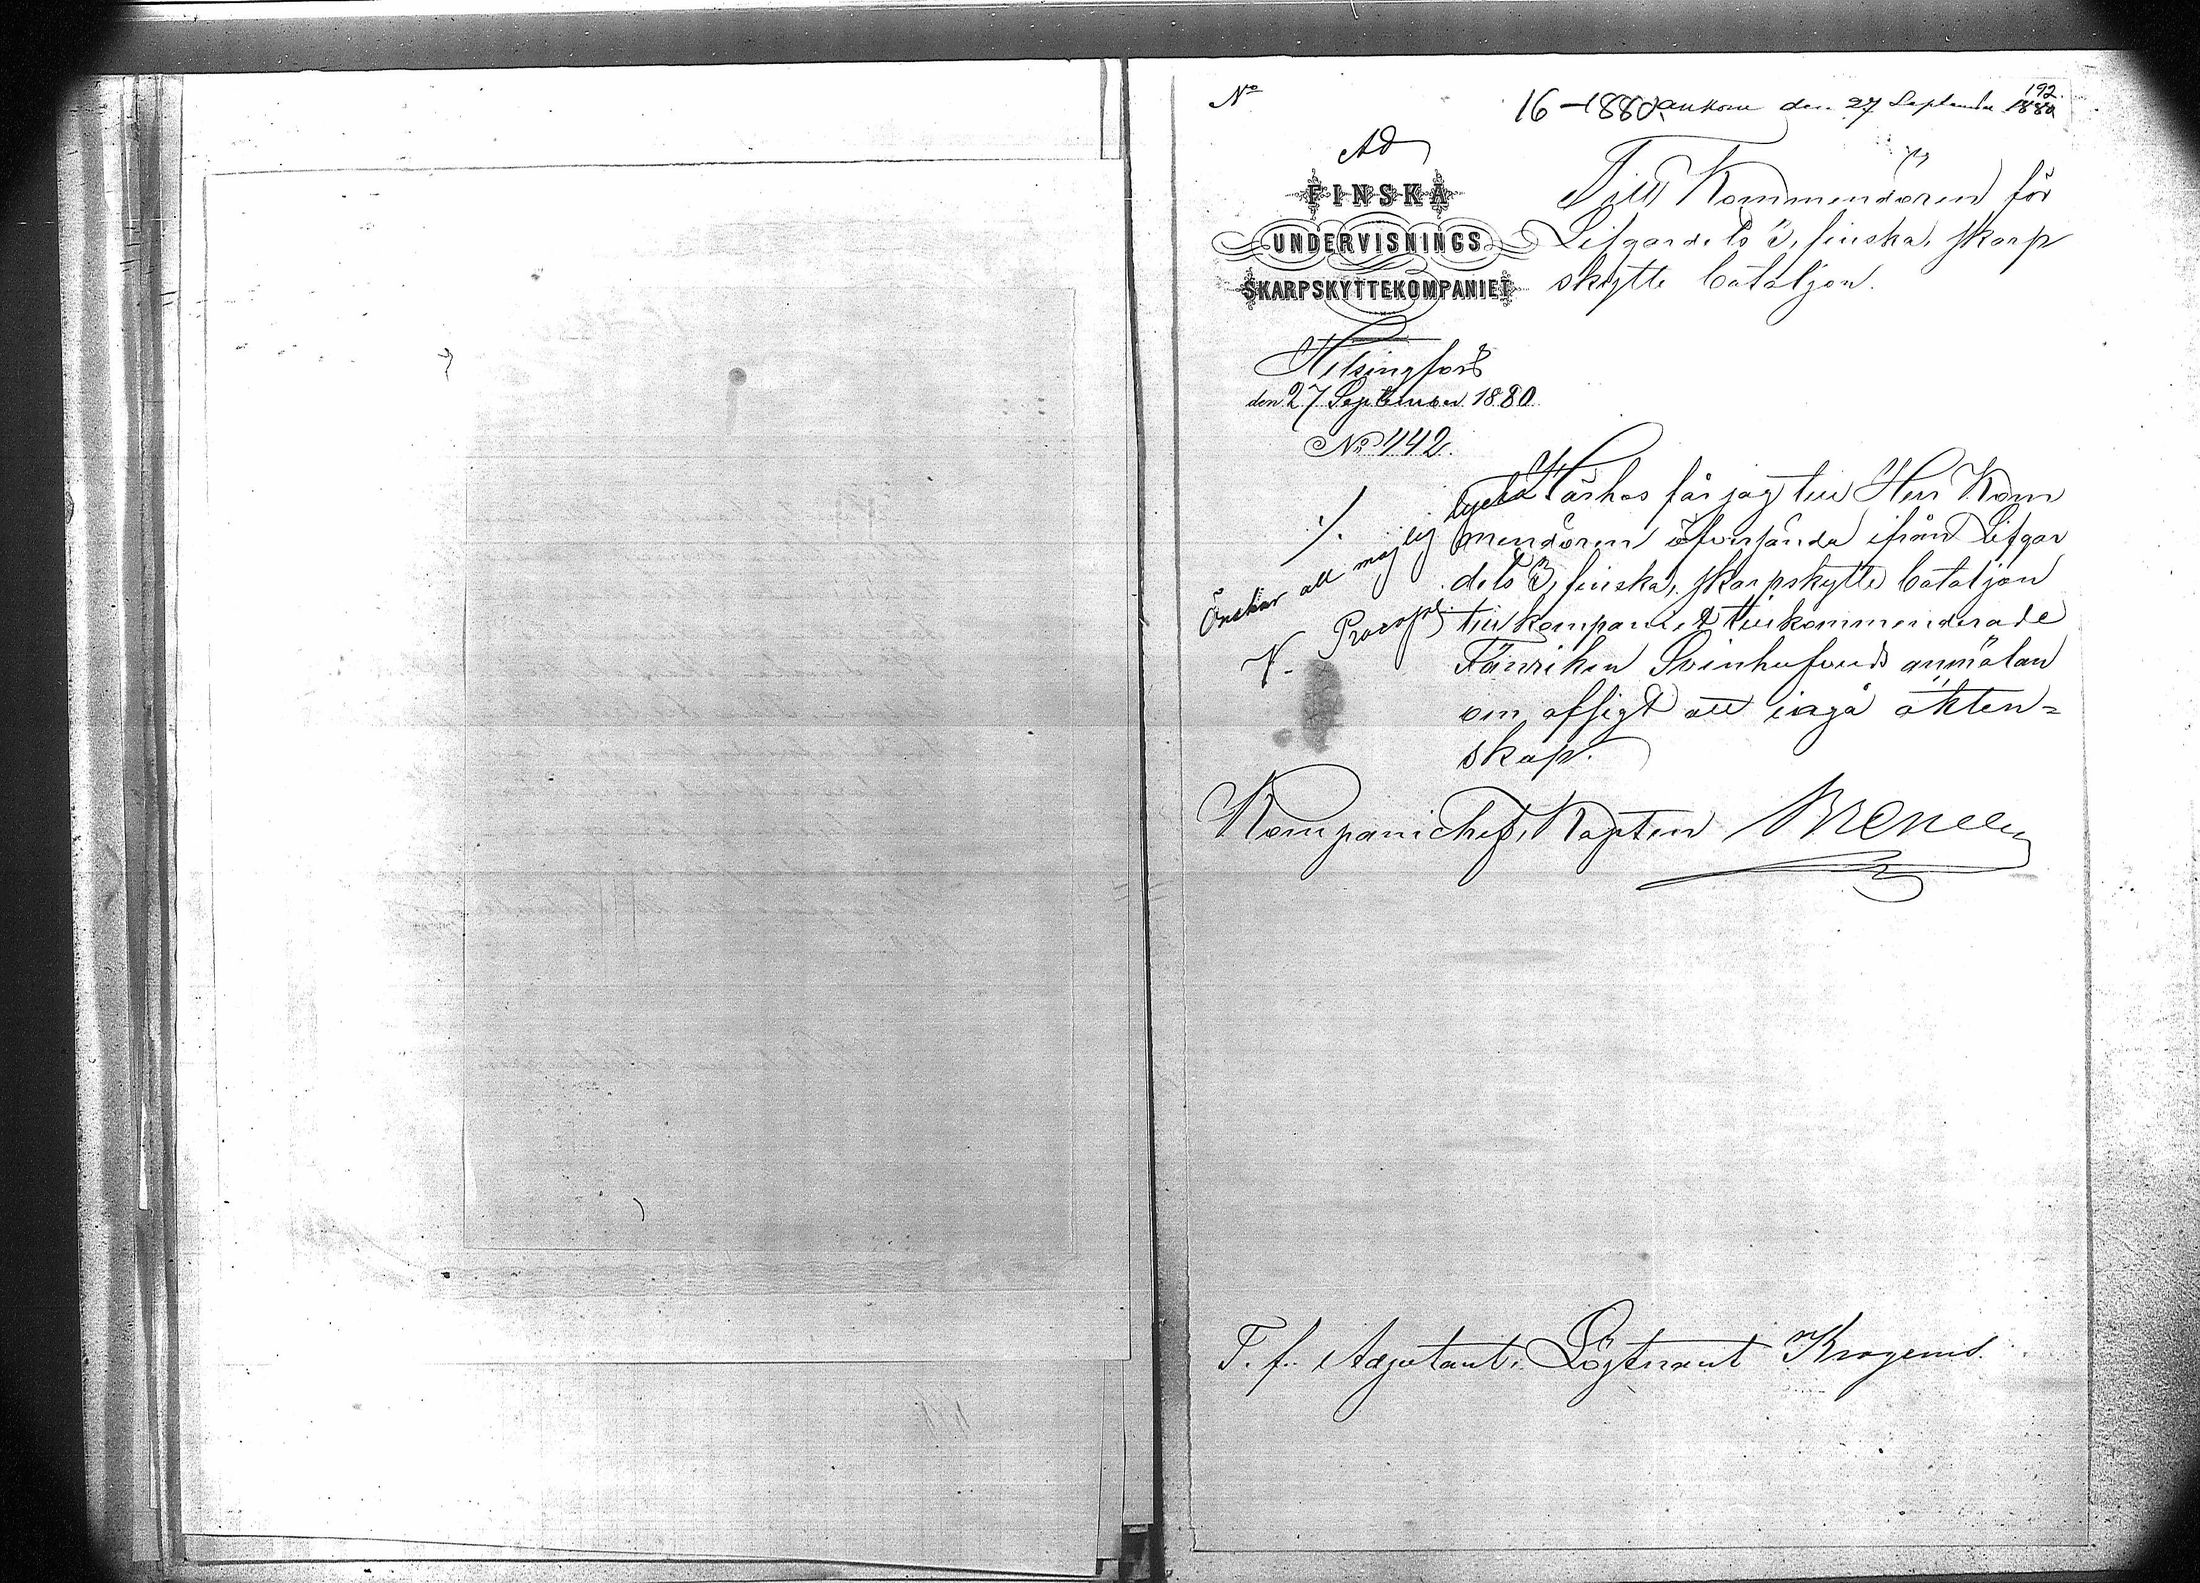 No
16-1880. ankom den 27 September 1880
192.
Ad
FINSKA
UNDERVISNINGS
SKARPSKYTTEKOMPANIET
Till Kommendören för
Lifgardets 3, finska, skarp
skytte bataljon.
Helsingfors
den 27 September 1880
No 442.
Härhos får jag till Herr Kom
mendören öfversända ifrån Lifgar
dets 3, finska, skarpskytte bataljon
till kompaniet tillkommenderade
Fänriken Svinhufvuds anmälan
om afsigt att ingå äkten=
skap.
./.
Önskar all möjlig lycka
V. Procopé.
Kompanichef, Kapten
T. f. Adjutant, Löjtnant